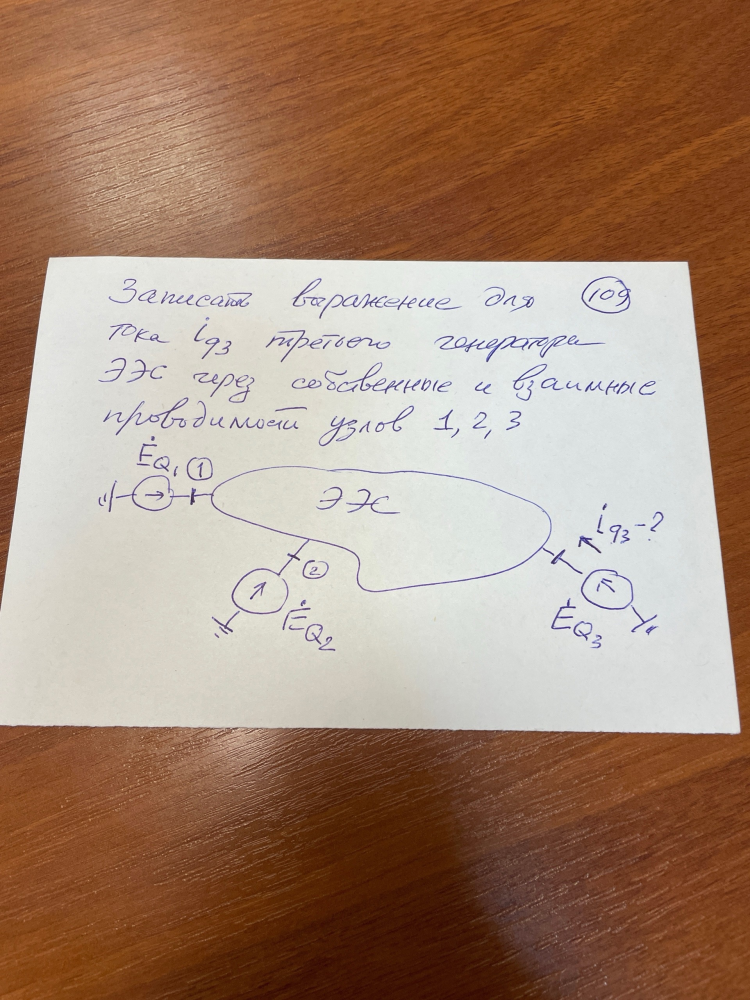 Записать выражение для 109
тока i̇q3 третьего генератора
ЭЭС через собственные и взаимные
проводимости узлов 1, 2, 3
ĖQ1 1
ЭЭС
i̇q3 - ?
2
ĖQ2
ĖQ3